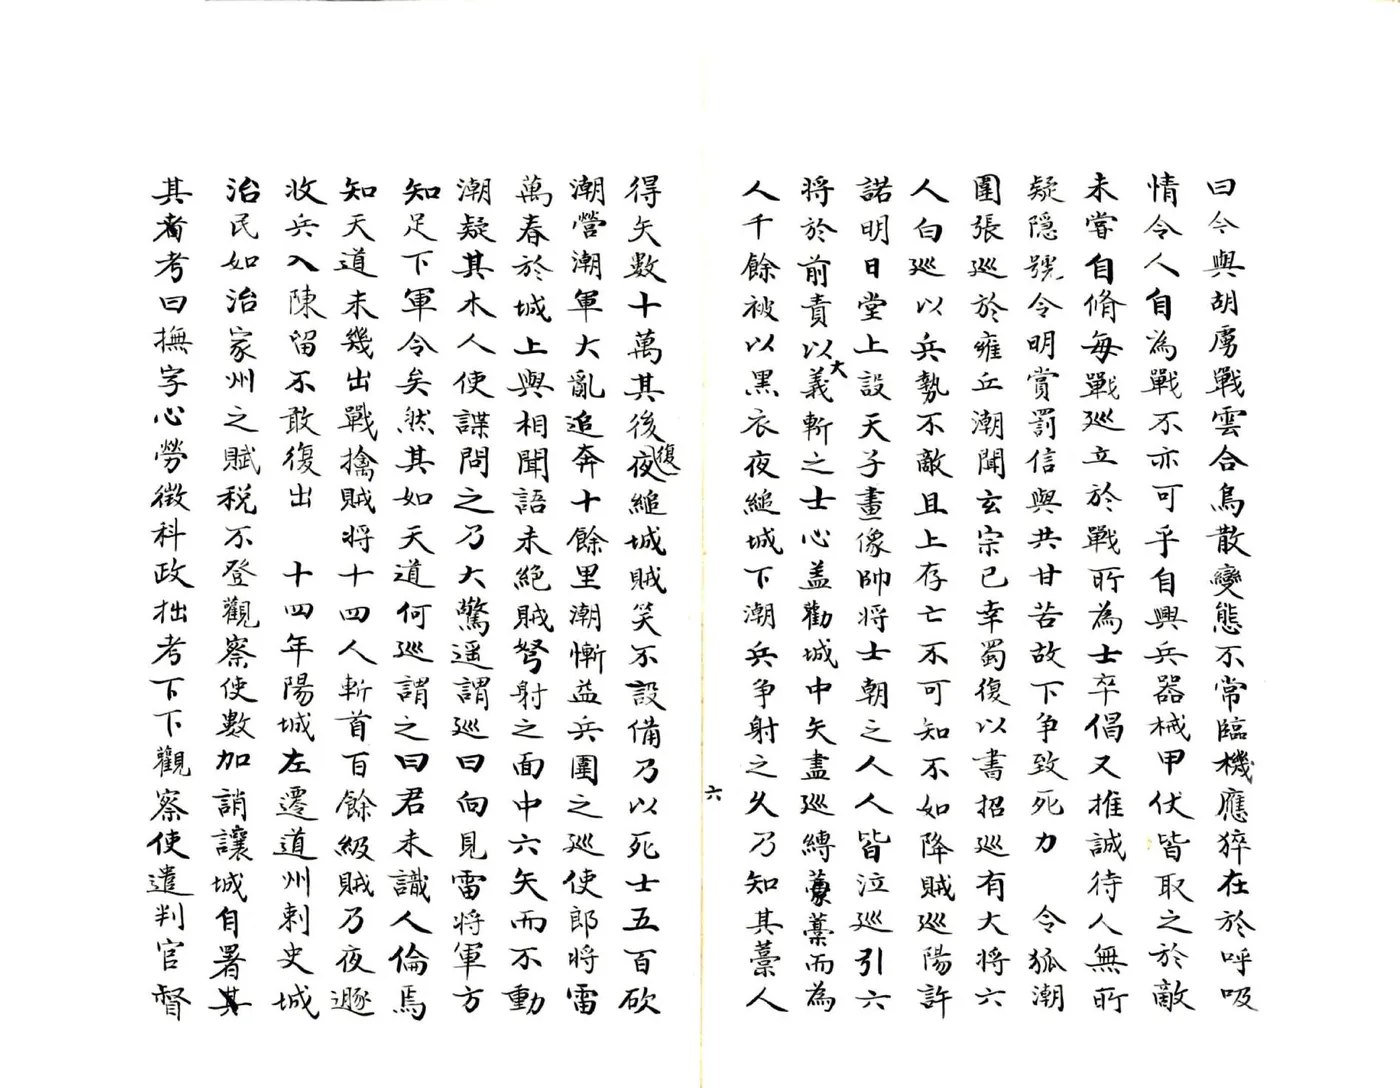 曰今與胡虜戰雲合鳥散變態不常臨機應猝在於呼吸
情令人自為戰不亦可乎自興兵器械甲伏皆取之於敵
未甞自脩每戰巡立於戰所為士卒倡又推誠待人無所
疑隱號令明賞罰信與共甘苦故下爭致死力　令狐潮
圍張巡於雍丘潮聞玄宗已幸蜀復以書招巡有大將六
人白巡以兵勢不敵且上存亡不可知不如降賊巡陽許
諾明日堂上設天子畫像帥將士朝之人人皆泣巡引六
將於前責以大義斬之士心盖勸城中矢盡巡縛藁藁而為
人千餘被以黑衣夜縋城下潮兵争射之久乃知其藁人
六
得矢數十萬其後復夜縋城賊笑不設備乃以死士五百砍
潮營潮軍大亂追奔十餘里潮慚益兵圍之巡使郎將雷
萬春於城上與相聞語未絕賊弩射之面中六矢而不動
潮疑其木人使諜問之乃大驚遥謂巡曰向見雷將軍方
知足下軍令矣然其如天道何巡謂之曰君未識人倫焉
知天道未幾出戰擒賊將十四人斬首百餘級賊乃夜遯
收兵入陳留不敢復出　十四年陽城左遷道州刺史城
治民如治家州之賦税不登觀察使數加誚讓城自署其
其考考曰撫字心勞徵科政拙考下下觀察使遣判官督